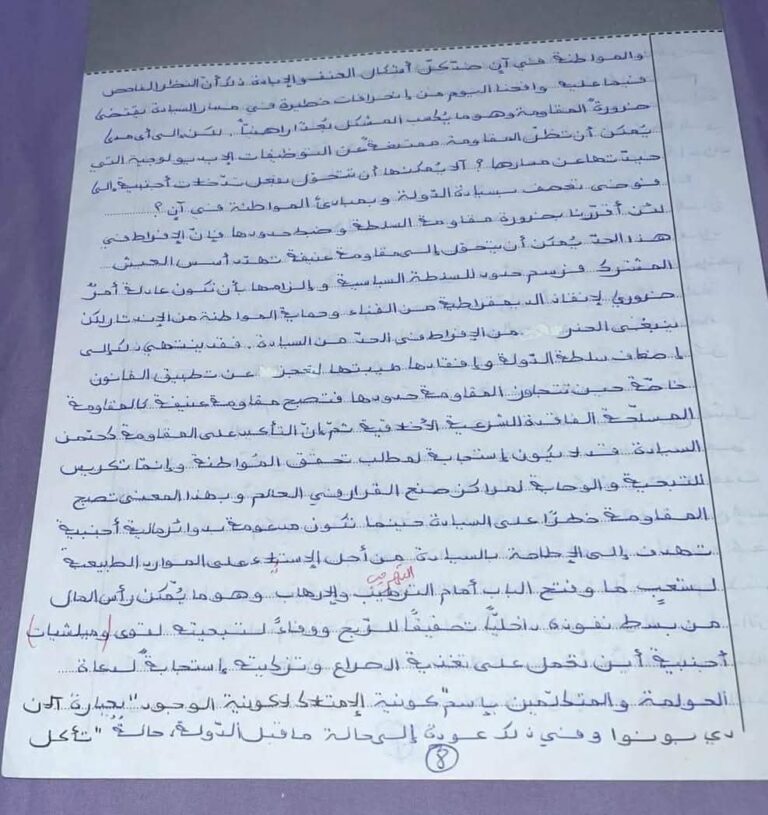 والمواطنة في آن ضدّ كلّ أشكال العنف والإبادة ذلك أنّ النظر الفاحص
فيما عليه واقعنا اليوم من إنحرافات خطيرة في مسار السيادة يقتضي
ضرورة المقاومة وهو ما يُكسب المشكل بُعدًا راهنيًّا. لكن إلى أي مدى
يُمكن أن تظلّ المقاومة ممتنعة عن التوظيفات الإيديولوجية التي
حيدتها عن مسارها؟ ألا يُمكنها أن تتحوّل بفعل تدخلات أجنبية إلى
فوضى تعصف بسيادة الدّولة وبمبادئ المواطنة في آن؟
لئن أقررنا بضرورة مقاومة السلطة وضبط حدودها فإنّ الإفراط في
هذا الحدّ يُمكن أن يتحوّل إلى مقاومة عنيفة تهدّد أسس العيش
المشترك فرسم حدود للسلطة السياسية وإلزامها بأن تكون عادلة أمرٌ
ضروري لإنقاذ الديمقراطية من الفناء وحماية المواطنة من الإندثار لكن
ينبغي الحذر من الإفراط في الحدّ من السيادة. فقد ينتهي ذلك إلى
إضعاف سلطة الدّولة وإفقادها هيبتها لتعجز عن تطبيق القانون
خاصّة حين تتجاوز المقاومة حدودها فتصبح مقاومة عنيفة كالمقاومة
المسلّحة الفاقدة للشرعية الأخلاقية ثمّ إنّ التأكيد على المقاومة كحدّ من
السيادة قد لا يكون إستجابة لمطلب تحقق المُواطنة وإنّما تكريس
للتبعية والوصاية لمراكز صنع القرار في العالم وبهذا المعنى تصبح
المقاومة خطرًا على السيادة حينما تكون مدعومة بدوائر مالية أجنبية
تهدف إلى الإطاحة بالسيادة من أجل الإستيلاء على الموارد الطبيعية
لشعبٍ ما وفتح الباب أمام الترهيب والإرهاب وهو ما يُمّكن رأس المال
التهريب
من بسط نفوذه داخليًّا تحقيقًا للرّبح ووفاءً لتبعيته لقوى (وميلشيات)
أجنبية أين تعمل على تغذية الصراع وتزكيته إستجابةً لدعاة
العولمة والمتكلّمين بإسم "كونية الإمتثال لا كونية الوجود" بعبارة آلان
دي بونوا وفي ذلك عودة إلى حالة ما قبل الدّولة، حالة "تأكل
8